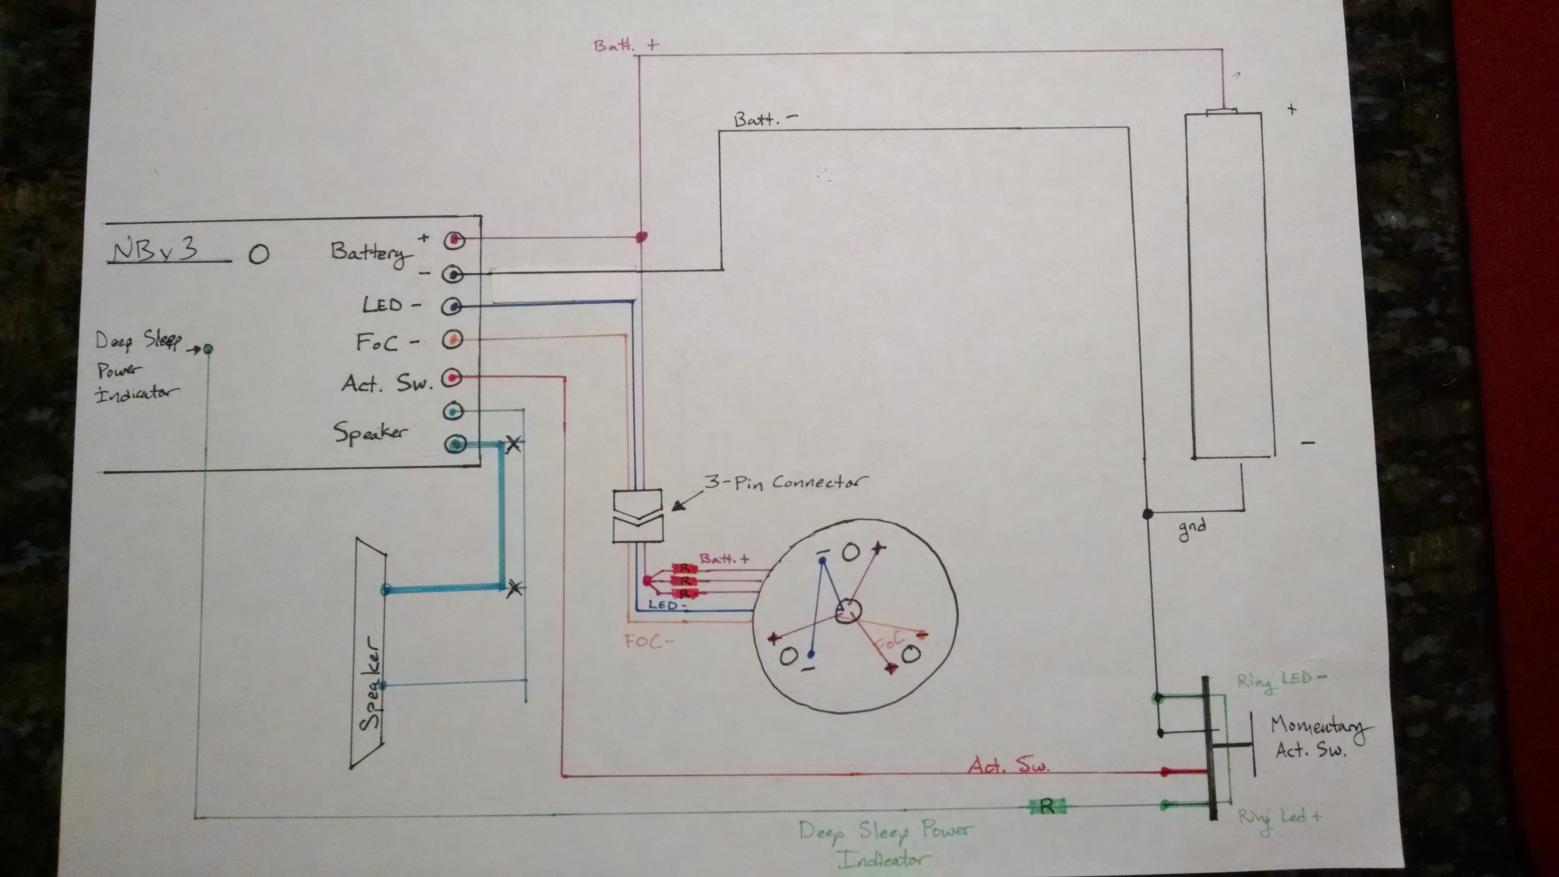 Batt. +
+
Batt. -
NBv3
Battery
+
-
LED -
FoC -
Act. Sw.
Speaker
Deep Sleep
Power
Indicator
-
3-Pin Connector
gnd
Batt. +
R
R
R
LED -
FOC -
-
+
+
-
FoC
+
Speaker
Ring LED -
Momentary
Act. Sw.
Act. Sw.
R
Ring Led +
Deep Sleep Power
Indicator